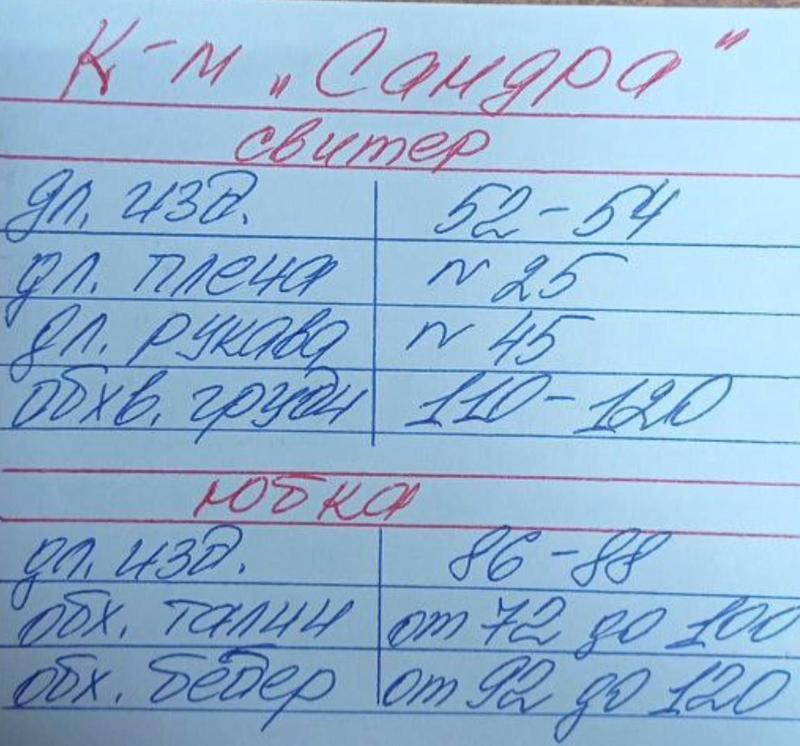 К-м „Сандра“
свитер
дл. изд. 52-54
дл. плеча ~ 25
дл. рукава ~ 45
обхв. груди 110-120
юбка
дл. изд. 86-88
обх. талии от 72 до 100
обх. бёдер от 92 до 120